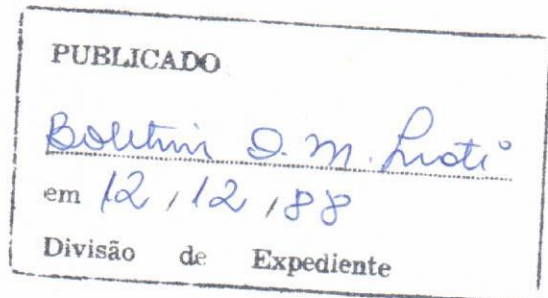 PUBLICADO
Boletim O. M.
em 12/12/88
Divisão de Expediente